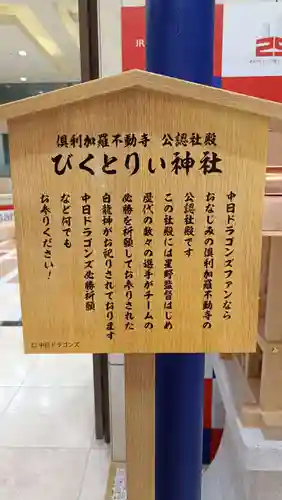 JR
25
倶利加羅不動寺 公認社殿
びくとりぃ神社
中日ドラゴンズファンなら
おなじみの倶利加羅不動寺の
公認社殿です。
この社殿には星野監督はじめ
歴代の数々の選手がチームの
必勝を祈願してお参りされた
白龍神がお祀りされております
中日ドラゴンズ必勝祈願
など何でも
お参りください!
中日ドラゴンズ